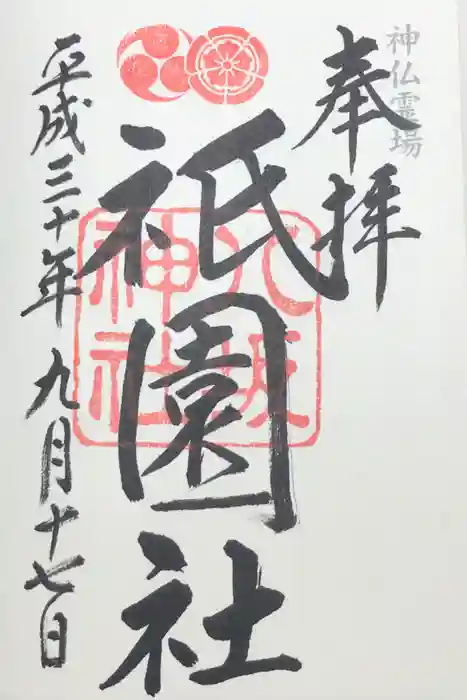 神仏霊場
奉拝
八坂
神社
祇園社
平成三十年九月十七日